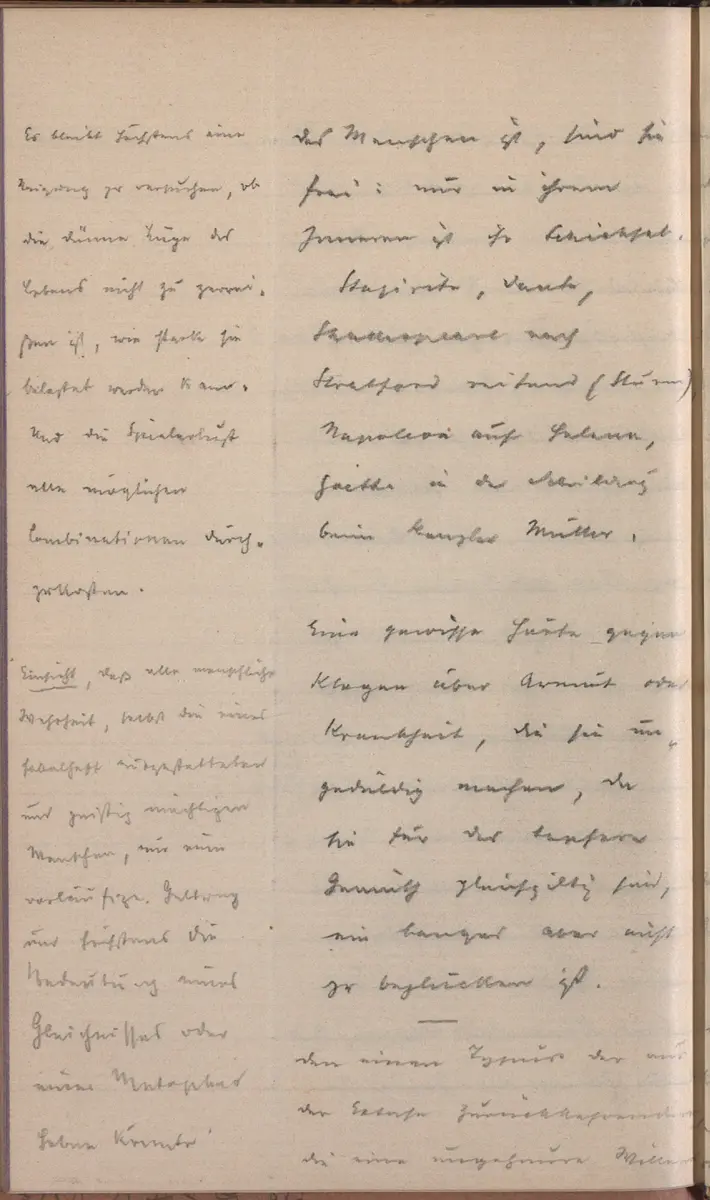 Es bleibt höchstens eine
Neigung zu versuchen, ob
die dünne Lüge des
Lebens nicht zu zerrei-
ßen ist, wie stark sie
belastet werden kann.
Und die Spielerlust
alle möglichen
Combinationen durch-
zukosten.
Einsicht, daß alle menschliche
Wahrheit, selbst die eines
fabelhaft ausgestatteten
und geistig mächtigen
Menschen, nur eine
vorläufige Geltung
und höchstens die
Bedeutung eines
Gleichnisses oder
einer Metapher
haben könnte
des Menschen ist, sind sie
frei: nur in ihrem
Inneren ist ihr Schicksal.
Stagirite, Dante,
Shakespeare nach
Stratford reitend (Sturm)
Napoleon auf Helena,
Goethe in der
beim Kanzler Müller.
Eine gewisse Härte gegen
Klagen über Armut oder
Krankheit, die sie un-
geduldig machen, da
sie für das tapfere
Gemüth gleichgiltig sind,
ein banges aber nicht
zu beglücken ist.
den einen Typus der aus
der Extase
die eine ungeheure Willen